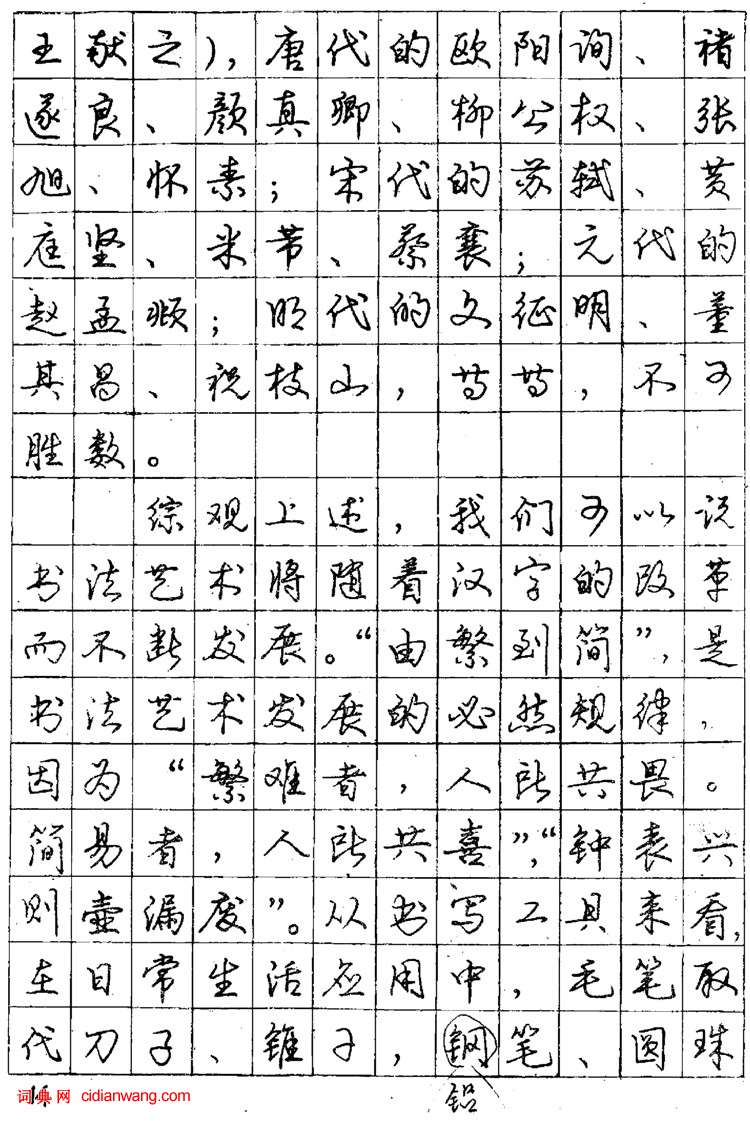 王献之），唐代的欧阳询、褚
遂良、颜真卿、柳公权、张
旭、怀素；宋代的苏轼、黄
庭坚、米芾、蔡襄；元代的
赵孟頫；明代的文征明、董
其昌、祝枝山，等等，不可
胜数。
综观上述，我们可以说
书法艺术将随着汉字的改革
而不断发展。“由繁到简”，是
书法艺术发展的必然规律，
因为“繁难者，人所共畏。
简易者，人所共喜”，“钟表兴
则壶漏废”。从书写工具来看，
在日常生活应用中，毛笔取
代刀子、锥子，钢笔、圆珠
铅
词典网 cidianwang.com